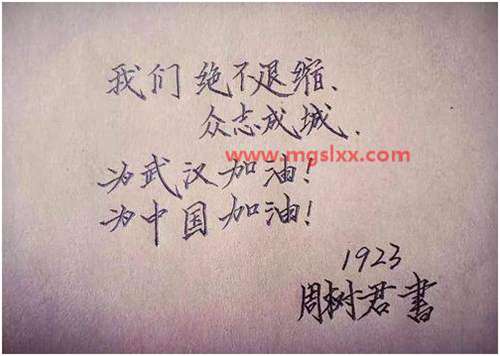 我们绝不退缩、
众志成城、
www.mgslxx.com
为武汉加油!
为中国加油!
1923
周树君書